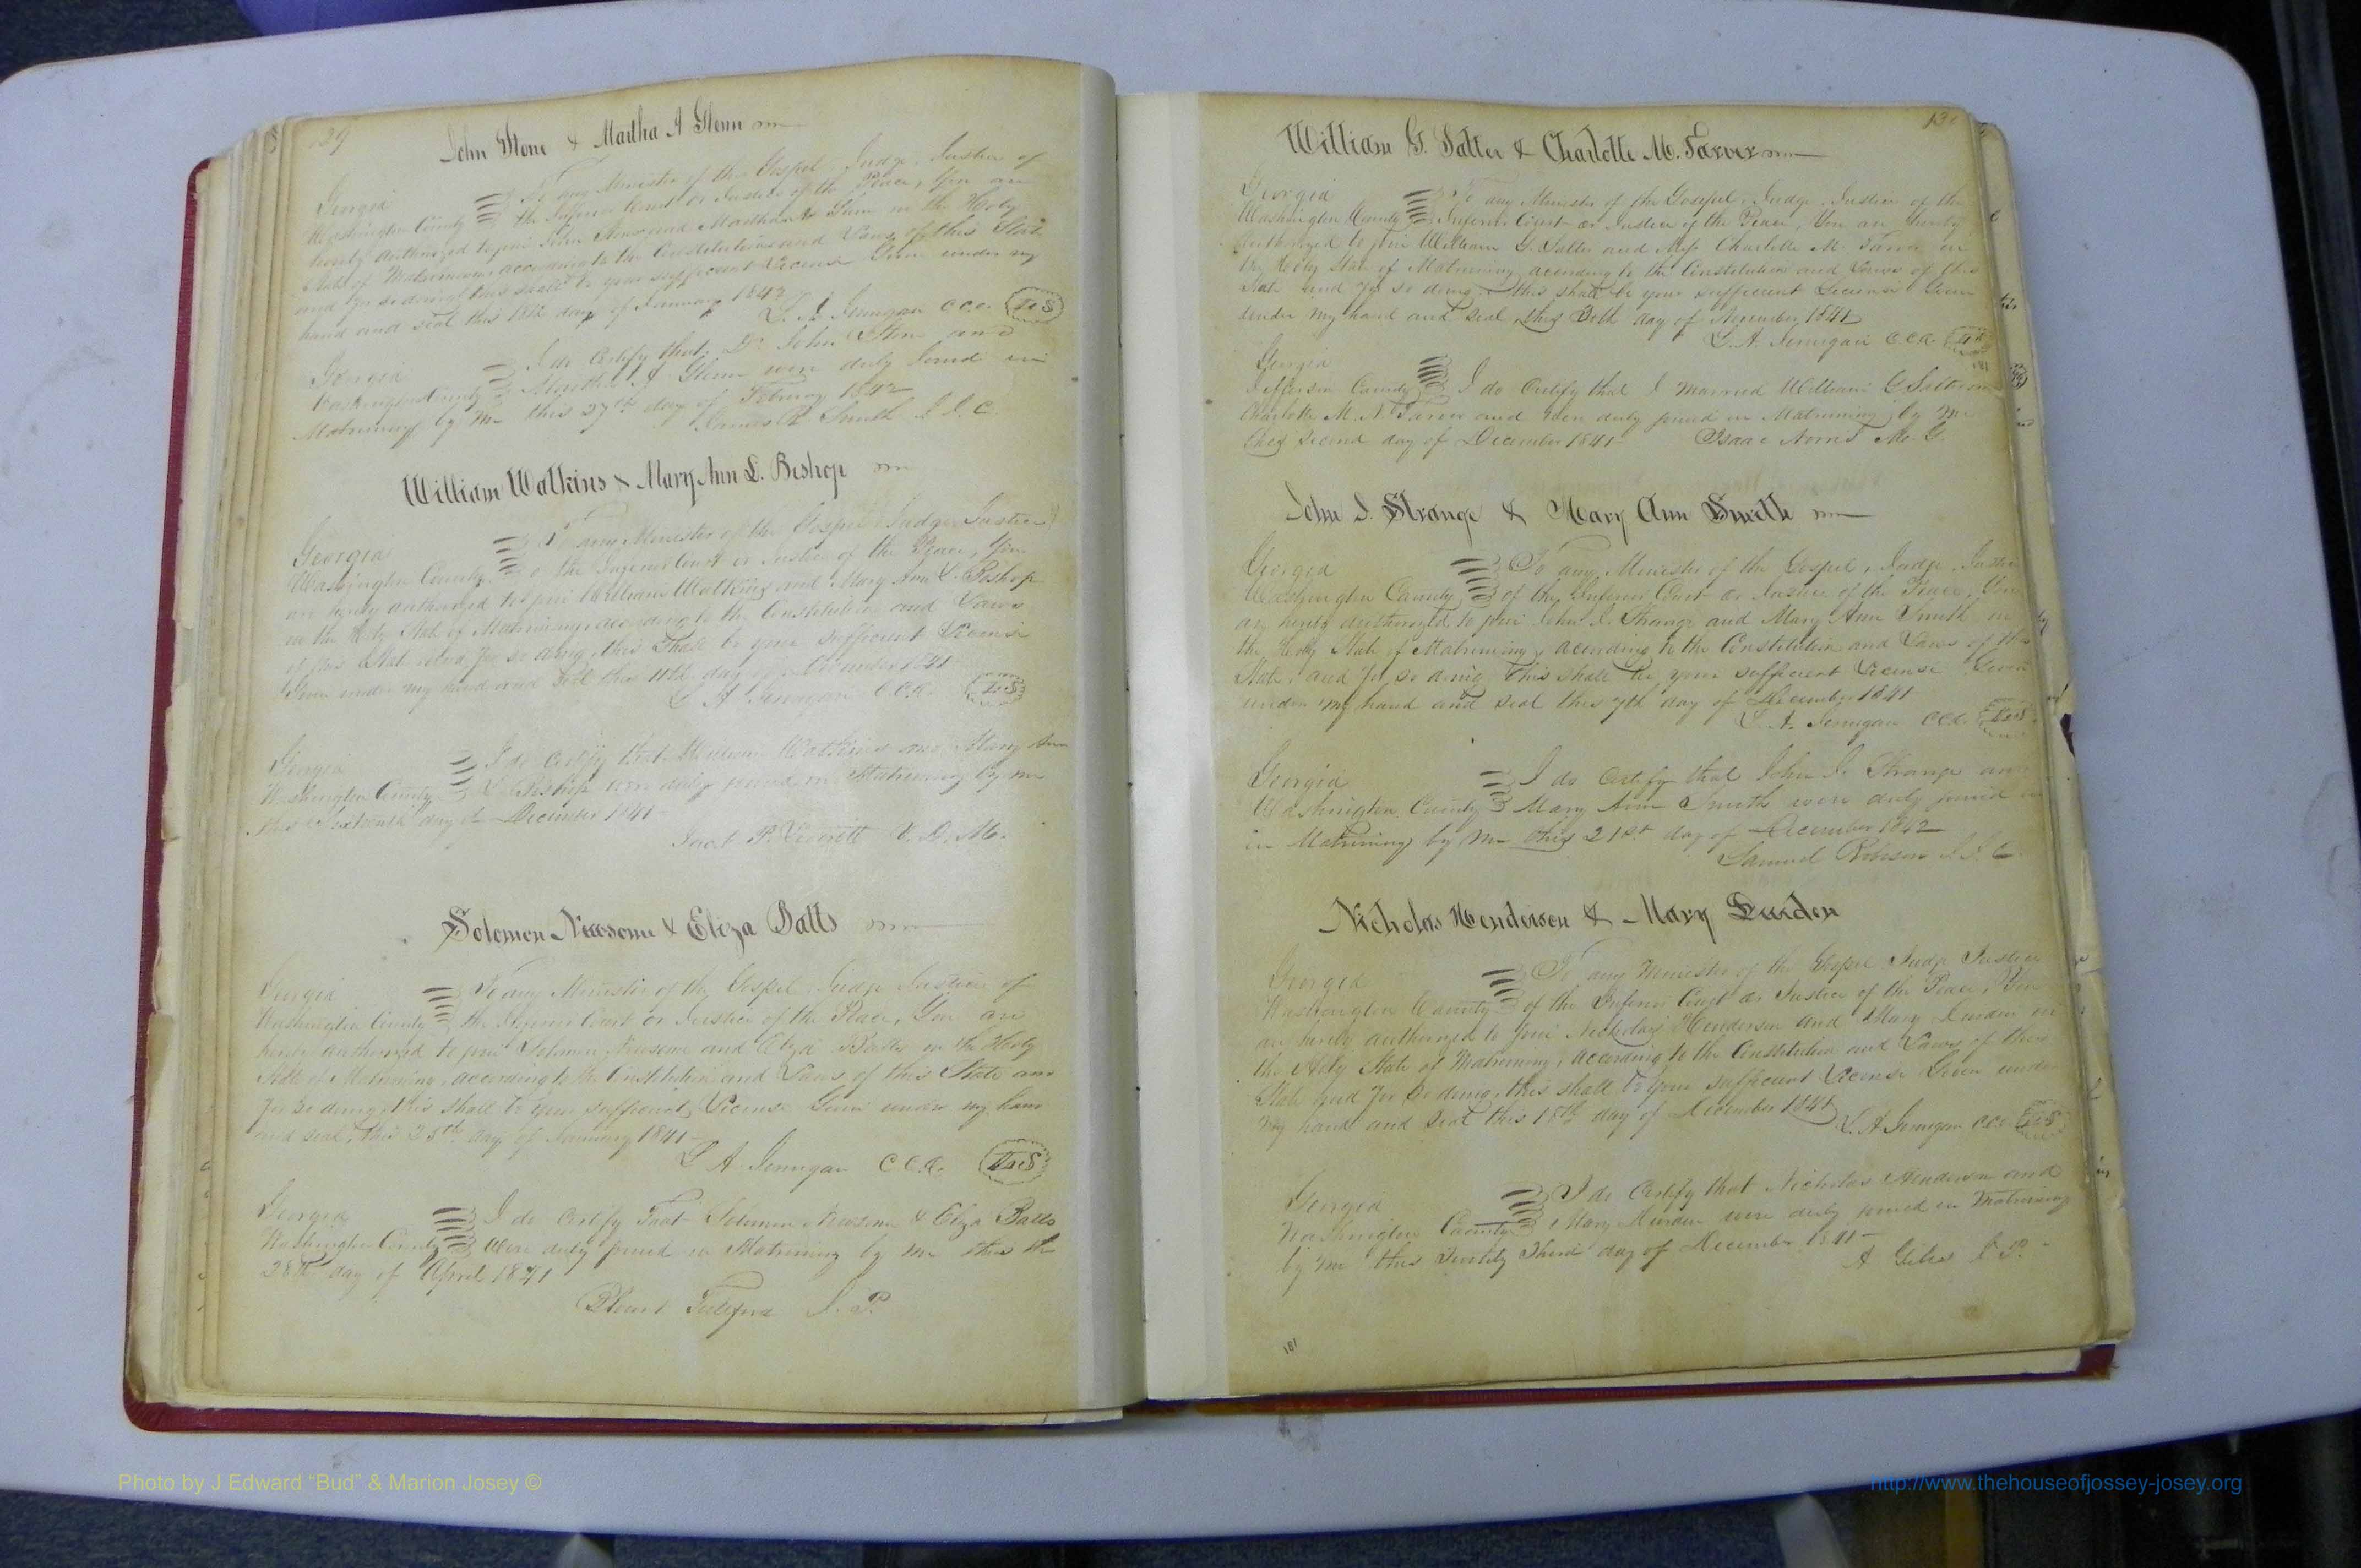 129
John Stone & Martha A Glenn
Georgia
Washington County
To any Minister of the Gospel, Judge, Justice of
the Inferior Court or Justice of the Peace, You are
hereby authorized to join John Stone and Martha A Glenn in the Holy
State of Matrimony, according to the Constitution and Laws of this State
and for so doing this shall be your sufficient License Given under my
hand and seal this 18th day of January 1842
L. A. Jernigan C.C.O.
Georgia
Washington County
I do Certify that Dr John Stone and
Martha A Glenn were duly Joined in
Matrimony by me this 27th day of February 1842
James R Smith J.I.C.
William Watkins & Mary Ann L. Bishop
Georgia
Washington County
To any Minister of the Gospel Judge Justice
of the Inferior Court or Justice of the Peace, You
are hereby authorized to join William Watkins and Mary Ann L. Bishop
in the Holy State of Matrimony, according to the Constitution and Laws
of this State and for so doing this shall be your sufficient License
Given under my hand and seal this 11th day of 1841
L A Jernigan C.C.O.
Georgia
Washington County
I do Certify that William Watkins and Mary Ann
L. Bishop were duly joined in Matrimony by me
this Sixteenth day of December 1841
P. Everett V.D.M.
Solomon Newsome & Eliza Batts
Georgia
Washington County
To any Minister of the Gospel, Judge Justice of
the Inferior Court or Justice of the Peace, You are
hereby authorized to join Solomon Newsome and Eliza Batts in the Holy
State of Matrimony, according to the Constitution and Laws of this State and
for so doing this shall be your sufficient License Given under my hand
and seal, this 25th day of January 1841
L A Jernigan C.C.O.
Georgia
Washington County
I do Certify That Solomon Newsome & Eliza Batts
Were duly joined in Matrimony by me this the
28th day of April 1841
J. P.
William G. Salter & Charlotte M. Tarver
Georgia
Washington County
To any Minister of the Gospel, Judge, Justice of the
Inferior Court or Justice of the Peace, You are hereby
authorized to join William G. Salter and Miss Charlotte M. Tarver in
the Holy State of Matrimony, according to the Constitution and Laws of this
State and for so doing this shall be your sufficient License Given
under my hand and seal this 30th day of November 1841
L. A. Jernigan C.C.O.
Georgia
Jefferson County
I do Certify that I married William G Salter and
Charlotte M. A. Tarver and were duly joined in Matrimony by me
this second day of December 1841
Isaac Norris M. G.
John J. Strange & Mary Ann Smith
Georgia
Washington County
To any Minister of the Gospel, Judge, Justice
of the Inferior Court or Justice of the Peace, You
are hereby authorized to join John J. Strange and Mary Ann Smith in
the Holy State of Matrimony, according to the Constitution and Laws of this
State, and for so doing this shall be your sufficient License Given
under my hand and seal this 7th day of December 1841
L. A. Jernigan CCO.
Georgia
Washington County
I do Certify that John J. Strange and
Mary Ann Smith were duly joined
in Matrimony by me this 21st day of December 1842
Samuel Robison J.I.C.
Nicholas Henderson & Mary Durden
Georgia
Washington County
To any Minister of the Gospel Judge Justice
of the Inferior Court or Justice of the Peace, You
are hereby authorized to join Nicholas Henderson and Mary Durden in
the Holy State of Matrimony, according to the Constitution and Laws of this
State and for so doing, this shall be your sufficient License Given under
my hand and seal this 18th day of December 1841
L. A Jernigan CCO
Georgia
Washington County
I do Certify that Nicholas Henderson and
Mary Durden were duly joined in Matrimony
by me this Twenty Third day of December 1841
J. P.
181
Photo by J Edward “Bud” & Marion Josey ©
http://www.thehouseofjossey-josey.org